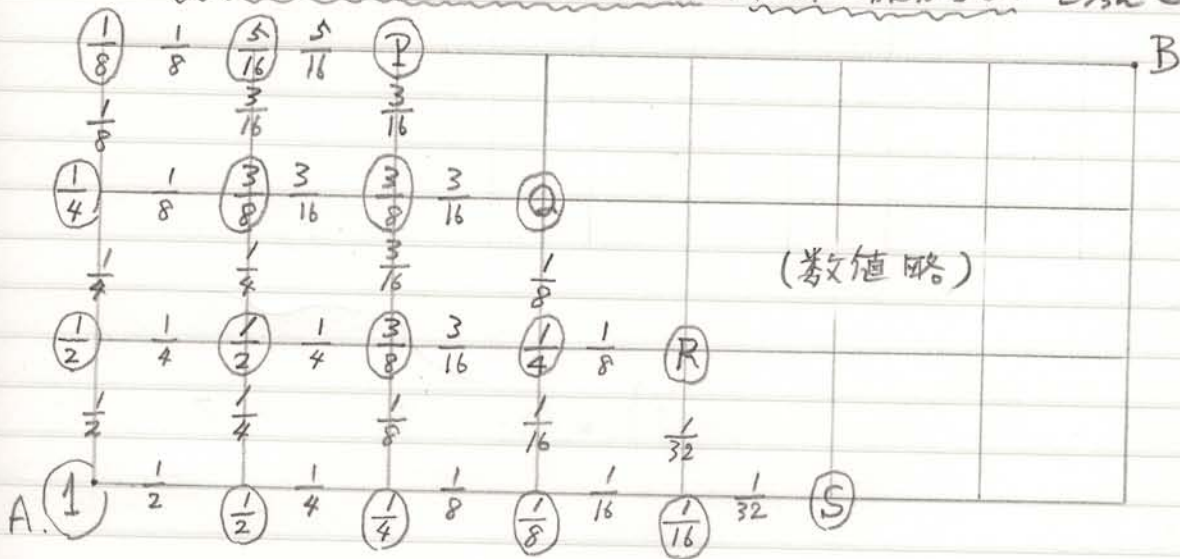 1/8 1/8 5/16 5/16 P B
1/8 3/16 3/16
1/4 1/8 3/8 3/16 3/8 3/16 Q
1/4 1/4 3/16 1/8 (数値略)
1/2 1/4 1/2 1/4 3/8 3/16 1/4 1/8 R
1/2 1/4 1/8 1/16 1/32
A. 1 1/2 1/2 1/4 1/4 1/8 1/8 1/16 1/16 1/32 S